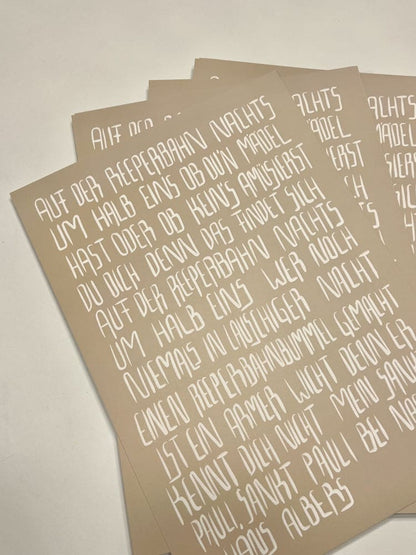 AUF DER REEPERBAHN NACHTS
UM HALB EINS OB DUN MÄDEL
HAST ODER OB KEIN'S AMÜSIERST
DU DICH DENN DAS FINDET SICH
AUF DER REEPERBAHN NACHTS
UM HALB EINS WER NOCH
NIEMAS IN LAUSCHIGER NACHT
EINEN REEPERBAHNBUMMEL GEMACHT
IST EIN ARMER WICHT DENN ER
KENNT DICH NICHT MEIN SANKT
PAULI, SANKT PAULI BEI
HANS ALBERS
AUF DER
ACHTS
MÄDEL
ACHTS
MÄDEL